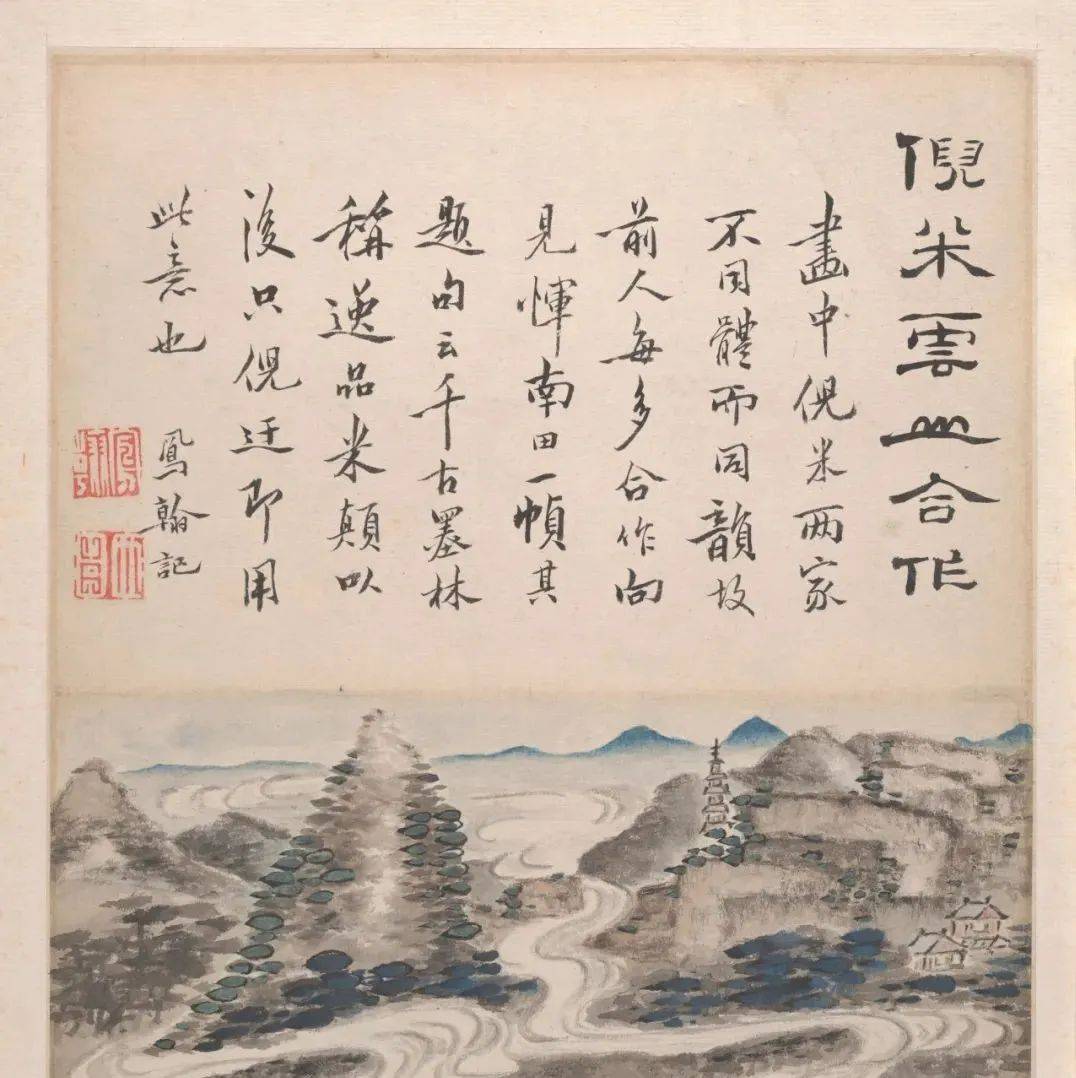 倪米雲山合作
畫中倪米两家
不同體而同韻故
前人每多合作向
見惲南田一幀其
題句云千古墨林
稱逸品米顛以
後只倪迂即用
此意也
鳳翰記